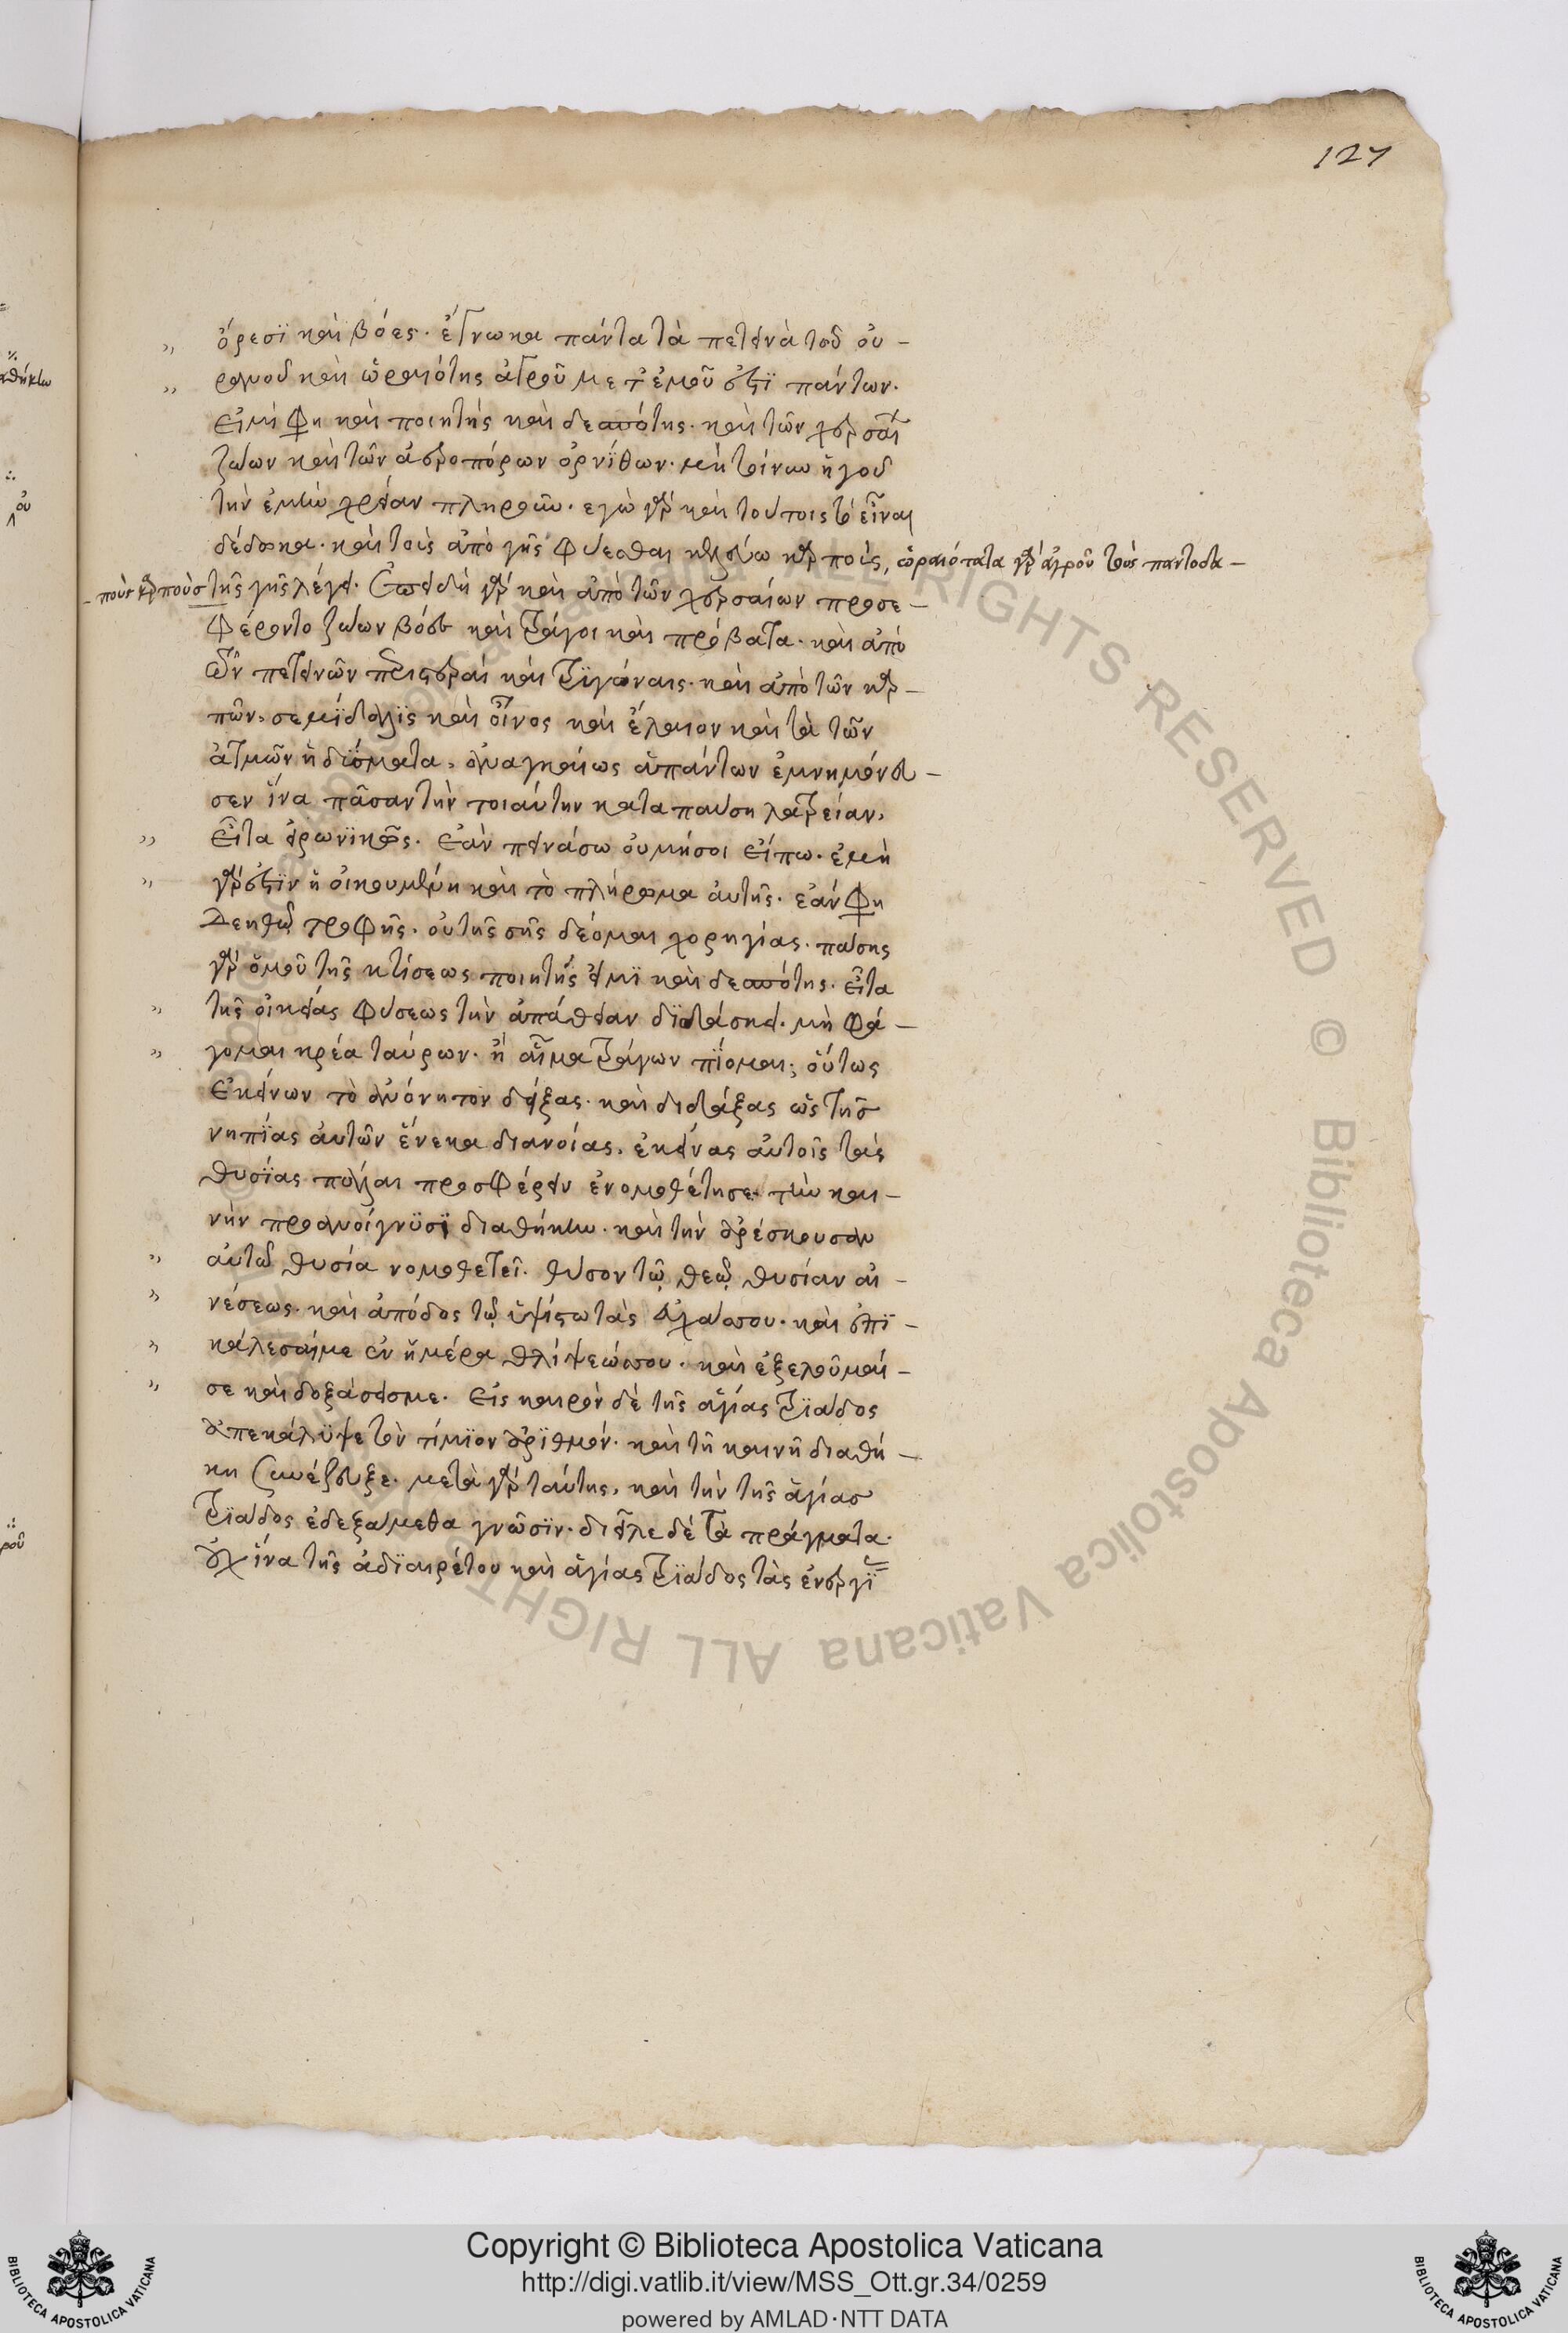 127
ὄρεσϊ καὶ βόες. ἔγνωκα πάντα τὰ πετεινὰ τοῦ οὐ -
ρανοῦ καὶ ὡραιότης ἀγροῦ μετ' ἐμοῦ ἐστϊ πάντων.
εἰμί φη καὶ ποιητής καὶ δεσπότης. καὶ τῶν χερσαί
ζώων καὶ τῶν ἀεροπόρων ὀρνίθων. μὴ τοίνυν ἡγοῦ
τὴν ἐμὴν χρείαν πληροῦν. εγὼ γὰρ καὶ τούτοις τὸ εἶναι
δέδωκα. καὶ τοῖς ἀπὸ γῆς φύεσθαι κελεύω καρποῖς, ὡραιότατα γὰρ ἀγροῦ τοὺς παντοδα -
- ποὺς καρποὺσ τῆς γῆς λέγει. Ἐπειδὴ γὰρ καὶ ἀπὸ τῶν χερσαίων προσε -
φέροντο ζώων βόες καὶ τράγοι καὶ πρόβατα. καὶ ἀπὸ
τῶν πετεινῶν περιστεραὶ καὶ τρϊγόναις. καὶ ἀπὸ τῶν καρ -
πῶν, σεμίδαλϊς καὶ οἶνος καὶ ἔλαιον καὶ τὰ τῶν
ἀτμῶν ἡδϋσματα, ἀναγκαίως ἁπάντων ἐμνημόνευ -
σεν ἵνα πᾶσαν τὴν τοιαύτην καταπαύση λατρείαν,
Εἶτα εἰρωνϊκῶς. Ἐὰν πεινάσω οὐ μήσοι εἴπω. ἐμὴ
γάρ ἐστϊν ἡ οἰκουμένη καὶ τὸ πλήρωμα ἀυτῆς. ἐάν φη
δεηθῶ τροφῆς. οὐ τῆς σῆς δέομαι χορηγίας. πάσης
γὰρ ὁμοῦ τῆς κτίσεως ποιητής εἰμϊ καὶ δεσπότης. εἶτα
τῆς οἰκείας φύσεως τὴν ἀπάθειαν δϊδάσκει. μὴ φά -
γομαι κρέα ταύρων. ἢ αἷμα τράγων πΐομαι; οὕτως
ἐκείνων τὸ ἀνόνητον δείξας. καὶ διδάξας ὡς τῆσ
νηπϊας ἀυτῶν ἕνεκα διανοίας, ἐκείνας αὐτοῖς τὰς
θυσίας πάλαι προσφέρειν ἐνομοθέτησε. τὴν και -
νὴν προανοίγνϋσϊ διαθήκην. καὶ τὴν ἀρέσκουσαν
αὐτῶ θυσία νομοθετεῖ. θύσον τῶ θεῶ θυσίαν αἰ -
νέσεως. καὶ ἀπόδος τῶ ὑψίστω τὰς εὐχάς σου. καὶ ἐπϊ -
κάλεσαίμε ἐν ἡμέρα θλίψεώς σου. καὶ ἐξελοῦμαί -
σε καὶ δοξάσεισμε. Εἰς καιρὸν δὲ τῆς ἁγίας τρϊάδος
ἀπεκάλϋψε τὸν τίμϊον ἀρϊθμόν. καὶ τῆ καινῆ διαθή -
κη συνέζευξε. μετὰ γὰρ ταύτης, καὶ τὴν τῆς ἁγίασ
τρϊάδος ἐδεξάμεθα γνῶσϊν. διεῖλε δὲ τὰ πράγματα.
οὐχ ἵνα τῆς ἀδϊαιρέτου καὶ ἁγίας τρϊάδος τὰς ἐνεργϊ
Copyright © Biblioteca Apostolica Vaticana
http://digi.vatlib.it/view/MSS_Ott.gr.34/0259
powered by AMLAD·NTT DATA